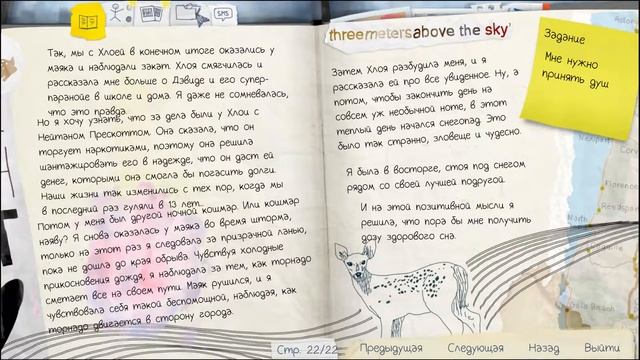 SMS
Так, мы с Хлоей в конечном итоге оказались у
маяка и наблюдали закат. Хлоя смягчилась и
рассказала мне больше о Дэвиде и его супер-
паранойе в школе и дома. Я даже не сомневалась,
что это правда.
Но я хочу узнать, что за дела были у Хлои с
Нейтаном Прескоттом. Она сказала, что он
торгует наркотиками, поэтому она решила
шантажировать его в надежде, что он даст ей
денег, которыми она смогла бы погасить долги.
Наши жизни так изменились с тех пор, когда мы
в последний раз гуляли в 13 лет...
Потом у меня был другой ночной кошмар. Или кошмар
наяву? Я снова оказалась у маяка во время шторма,
только на этот раз я следовала за призрачной ланью,
пока не дошла до края обрыва. Чувствуя холодные
прикосновения дождя, я наблюдала за тем, как торнадо
сметает все на своем пути. Маяк рушился, и я
чувствовала себя такой беспомощной, наблюдая, как
торнадо двигается в сторону города.
threemetersabove the sky
Затем Хлоя разбудила меня, и я
рассказала ей про все увиденное. Ну, а
потом, чтобы закончить день на
совсем уж необычной ноте, в этот
теплый день начался снегопад. Это
было так странно, зловеще и чудесно.
Я была в восторге, стоя под снегом
рядом со своей лучшей подругой.
И на этой позитивной мысли я
решила, что пора бы мне получить
дозу здорового сна.
Задание
Мне нужно
принять душ
Стр. 22/22 Предыдущая Следующая Назад Выйти